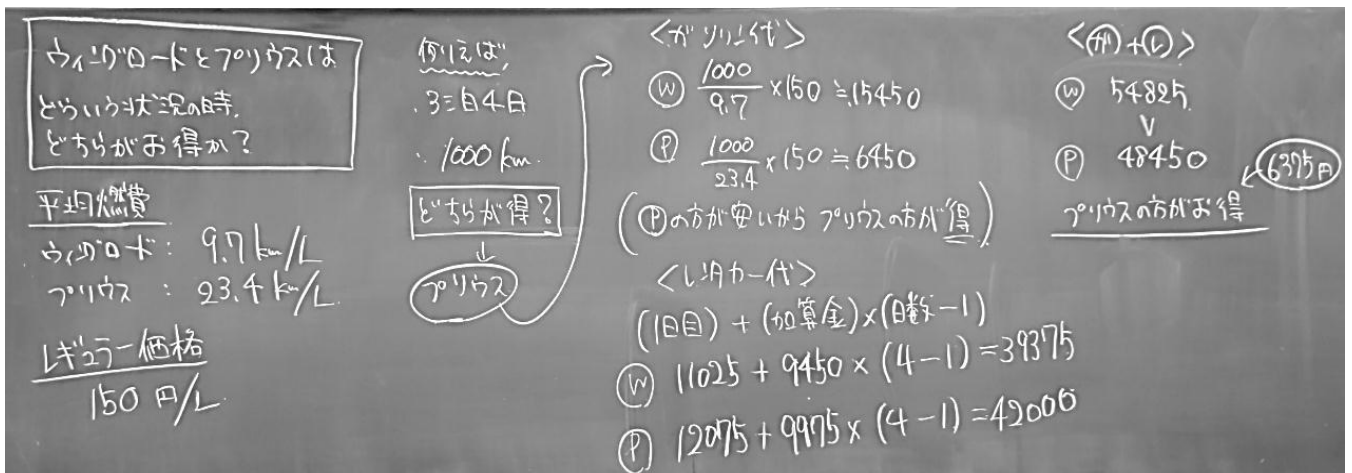 ウィングロードとプリウスは
どういう状況の時、
どちらがお得か?
平均燃費
ウィングロード: 9.7km/L
プリウス : 23.4km/L
レギュラー価格
150円/L
例えば、
・3泊4日
・1000km
どちらが得?
↓
プリウス
<ガソリン代>
Ⓦ 1000/9.7×150≒15450
Ⓟ 1000/23.4×150≒6450
(Ⓟの方が安いから プリウスの方が得)
<レンタカー代>
(1日目)+(加算金)×(日数-1)
Ⓦ 11025+9450×(4-1)=39375
Ⓟ 12075+9975×(4-1)=42000
<㋕+㋹>
Ⓦ 54825
∨
Ⓟ 48450
6375円
プリウスの方がお得